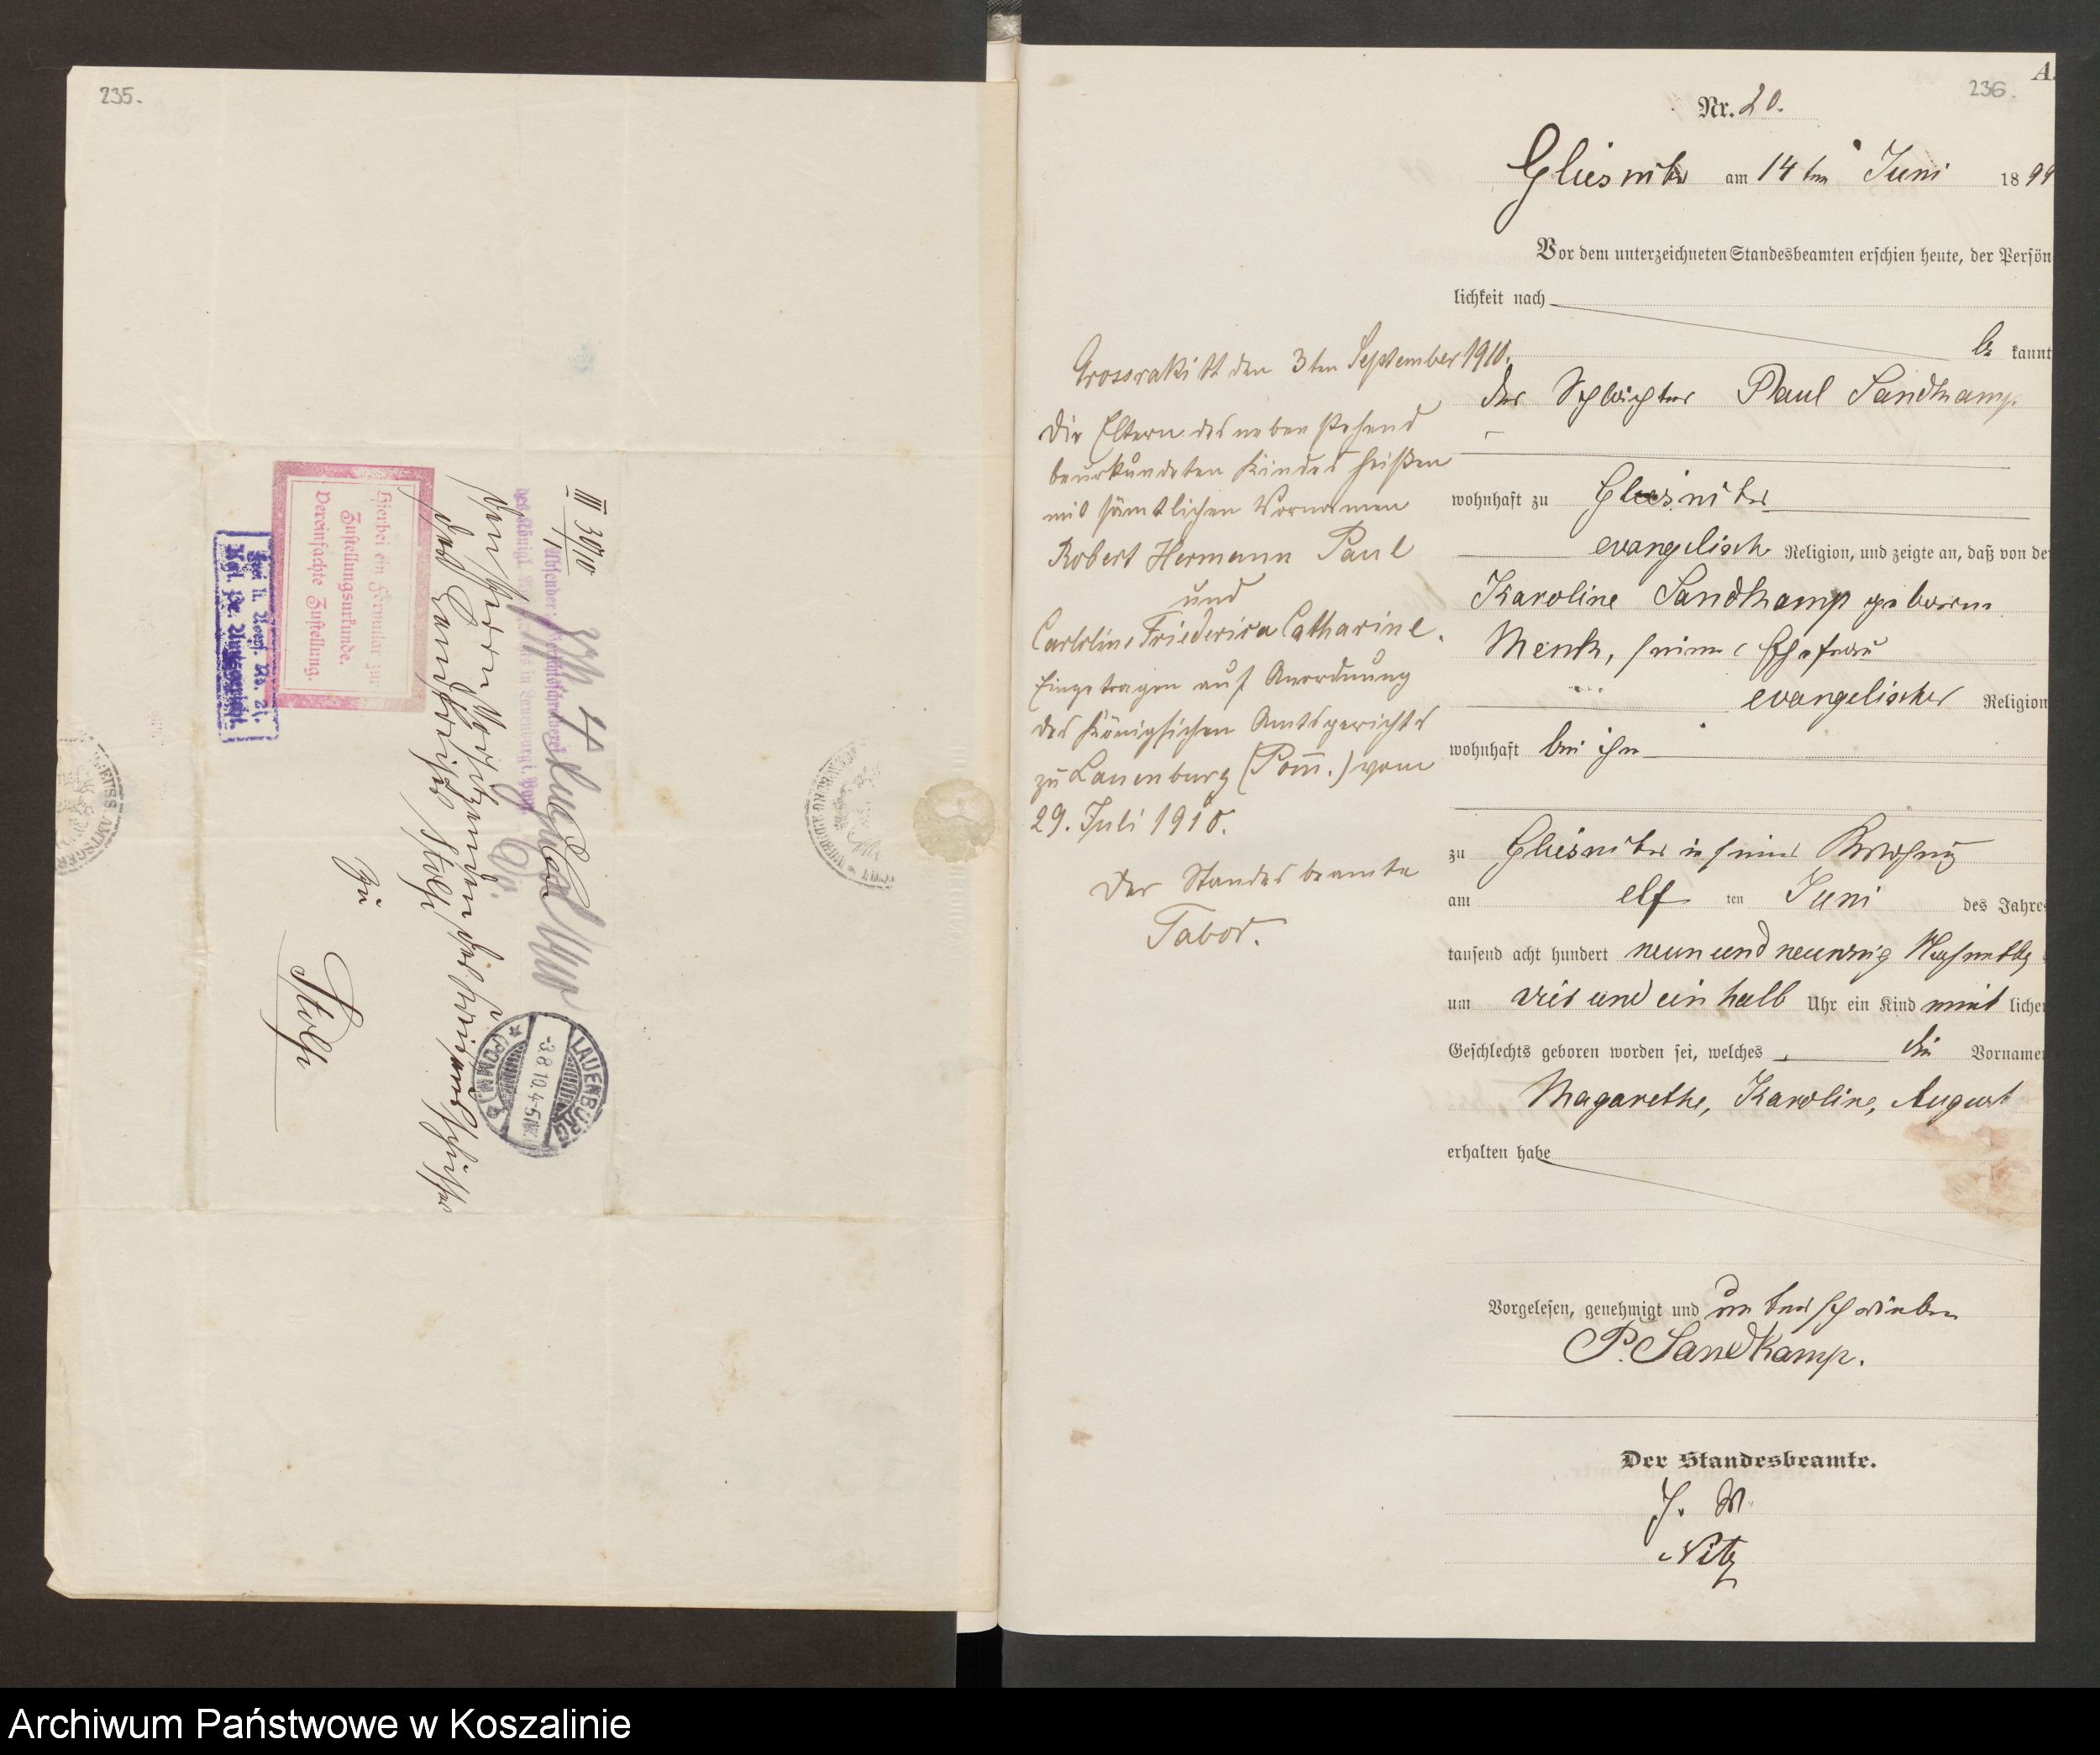 235.
III 30/10
Absender:
Gerichtsschreiberei
des Königl.
in Lauenburg i. Pom.
Hierbei ein Formular zu
Zustellungsurkunde.
Vereinfachte Zustellung.
Frei lt. Avers. No. 21.
Kgl. Pr. Amtsgericht.
Den Herrn Vorsitzenden des Kreisausschusses
des Landkreises Stolp
zu
Stolp
LAUENBURG
-3.8.10.4-5N.
* (POMM.)
236.
A.
Nr. 20.
Gliesnitz am 14ten Juni 1899
Vor dem unterzeichneten Standesbeamten erschien heute, der Persön
lichkeit nach
be kannt
der Paul Sandkamp
wohnhaft zu Gliesnitz
evangelisch Religion, und zeigte an, daß von de
Karoline Sandkamp geborene
Menk, seiner Ehefrau
evangelischer Religion
wohnhaft bei ihm
zu Gliesnitz in seiner Wohnung
am elf ten Juni des Jahres
tausend acht hundert neun und neunzig Nachmittag
um vier und ein halb Uhr ein Kind weib licher
Geschlechts geboren worden sei, welches die Vorname
Magarethe, Karoline, August
erhalten habe
Vorgelesen, genehmigt und unterschrieben
P. Sandkamp.
Der Standesbeamte.
J. V.
Nitz
Grossrakitt den 3ten September 1910.
Die Eltern des nebenstehend
beurkundeten Kindes heißen
mit sämtlichen Vornamen
Robert Hermann Paul
und
Caroline Friederica Catharine.
Eingetragen auf Anordnung
des Königlichen Amtsgerichts
zu Lauenburg (Pom̅.) vom
29. Juli 1910.
Der Standesbeamte
Tabor.
Archiwum Państwowe w Koszalinie